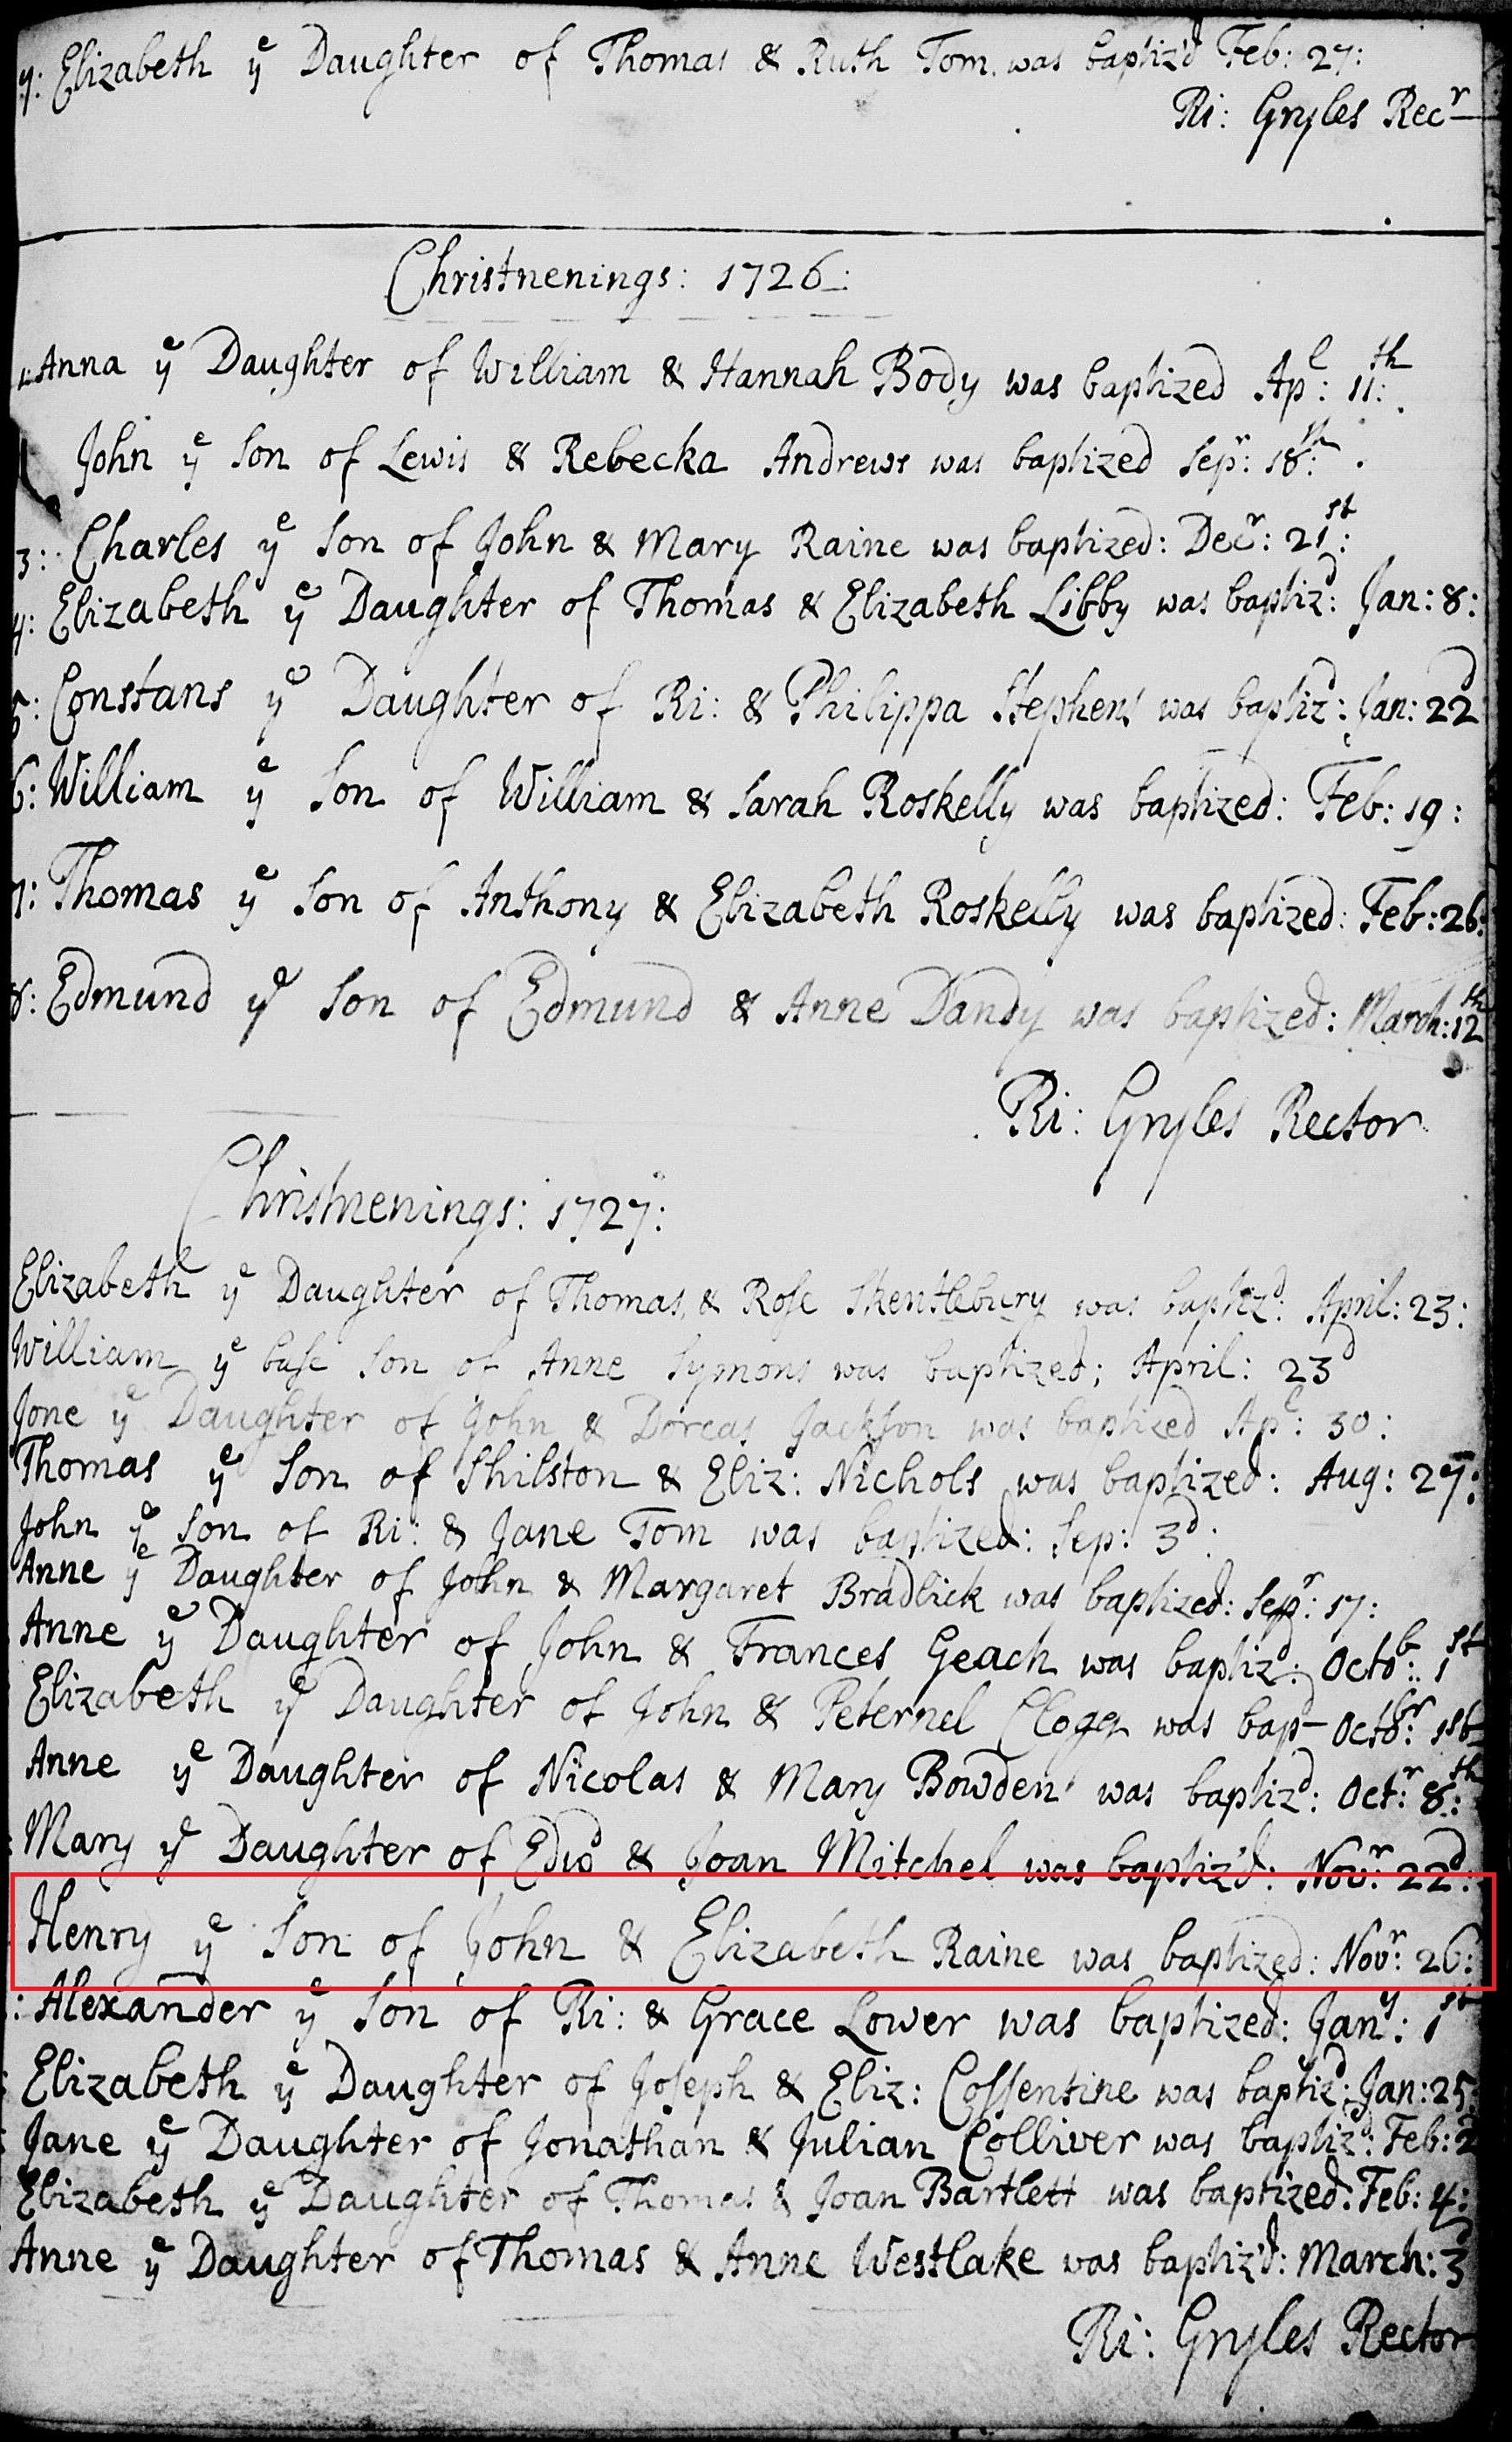 7: Elizabeth yᵉ Daughter of Thomas & Ruth Tom was baptiz'd Feb: 27:
Ri: Gryles Recʳ
Christnenings: 1726:
Anna yᵉ Daughter of William & Hannah Body was baptized Apˡ: 11ᵗʰ:
John yᵉ Son of Lewis & Rebecka Andrews was baptized Sepʳ: 18ᵗʰ:
3: Charles yᵉ Son of John & Mary Raine was baptized: Decʳ: 21ˢᵗ:
4: Elizabeth yᵉ Daughter of Thomas & Elizabeth Libby was baptizᵈ: Jan: 8:
5: Constans yᵉ Daughter of Ri: & Philippa Stephens was baptizᵈ: Jan: 22ᵈ
6: William yᵉ Son of William & Sarah Roskelly was baptized: Feb: 19:
7: Thomas yᵉ Son of Anthony & Elizabeth Roskelly was baptized: Feb: 26:
8: Edmund yᵉ Son of Edmund & Anne Dandy was baptized: March: 12ᵗʰ
Ri: Gryles Rector
Christnenings: 1727:
Elizabeth yᵉ Daughter of Thomas & Rose Skentlebury was baptizᵈ: April: 23:
William yᵉ base Son of Anne Symons was baptized; April: 23ᵈ
Jone yᵉ Daughter of John & Dorcas Jackson was baptized Apˡ: 30:
Thomas yᵉ Son of Shilston & Eliz: Nichols was baptized: Aug: 27:
John yᵉ Son of Ri: & Jane Tom was baptized: Sep: 3ᵈ:
Anne yᵉ Daughter of John & Margaret Bradlick was baptized: Sepʳ: 17:
Anne yᵉ Daughter of John & Frances Geach was baptizᵈ: Octoᵇ: 1ˢᵗ
Elizabeth yᵉ Daughter of John & Peternel Clogg was bap- Octoᵇʳ: 1st
Anne yᵉ Daughter of Nicolas & Mary Bowden was baptizᵈ: Octʳ: 8ᵗʰ:
Mary yᵉ Daughter of Edwᵈ & Joan Mitchel was baptiz'd: Novʳ: 22ᵈ:
Henry yᵉ Son of John & Elizabeth Raine was baptized: Novʳ: 26:
Alexander yᵉ Son of Ri: & Grace Lower was baptized: Janʸ: 1ˢᵗ
Elizabeth yᵉ Daughter of Joseph & Eliz: Cossentine was baptizᵈ: Jan: 25:
Jane yᵉ Daughter of Jonathan & Julian Colliver was baptizᵈ: Feb: 2
Elizabeth yᵉ Daughter of Thomas & Joan Bartlett was baptized: Feb: 4:
Anne yᵉ Daughter of Thomas & Anne Westlake was baptiz'd: March: 3ᵈ
Ri: Gryles Rector